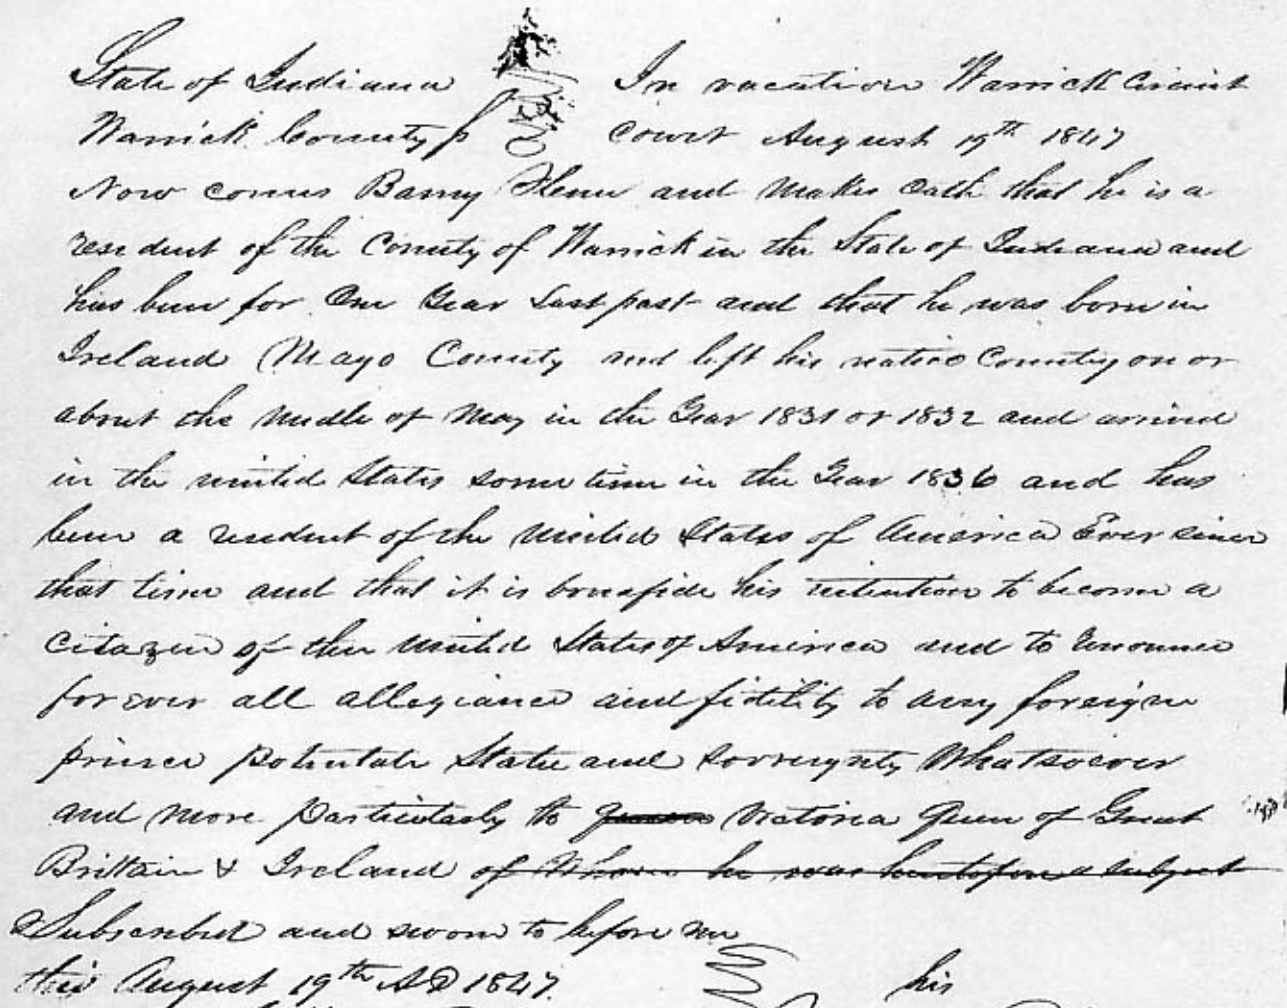 State of Indiana
Warrick County
In vacation Warrick Circuit
Court August 19th 1847
Now comes Barny and makes Oath that he is a
resident of the County of Warrick in the State of Indiana and
has been for One Year Last past and that he was born in
Ireland Mayo County and left his native County on or
about the Middle of May in the Year 1831 or 1832 and arrived
in the united States some time in the Year 1836 and has
been a resident of the United States of America Ever since
that time and that it is bonafide his intention to become a
Citazen of the United States of America and to renounce
forever all allegiance and fidility to any foreign
prince potentate State and sovreignty Whatsoever
and more particularly to Queen Victoria Queen of Great
Brittain & Ireland of Whom he was heretofore a subject
Subscribed and sworn to before me
this August 19th AD 1847.
his